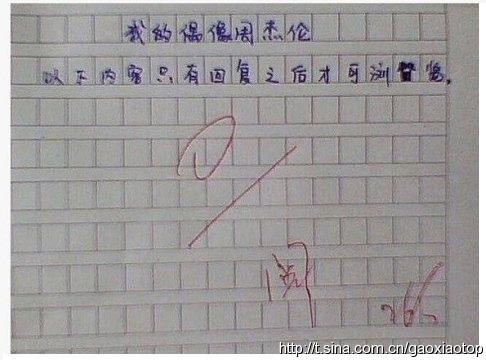 我的偶像周杰伦
以下内容只有回复之后才可浏览。
阅
http://t.sina.com.cn/gaoxiaotop